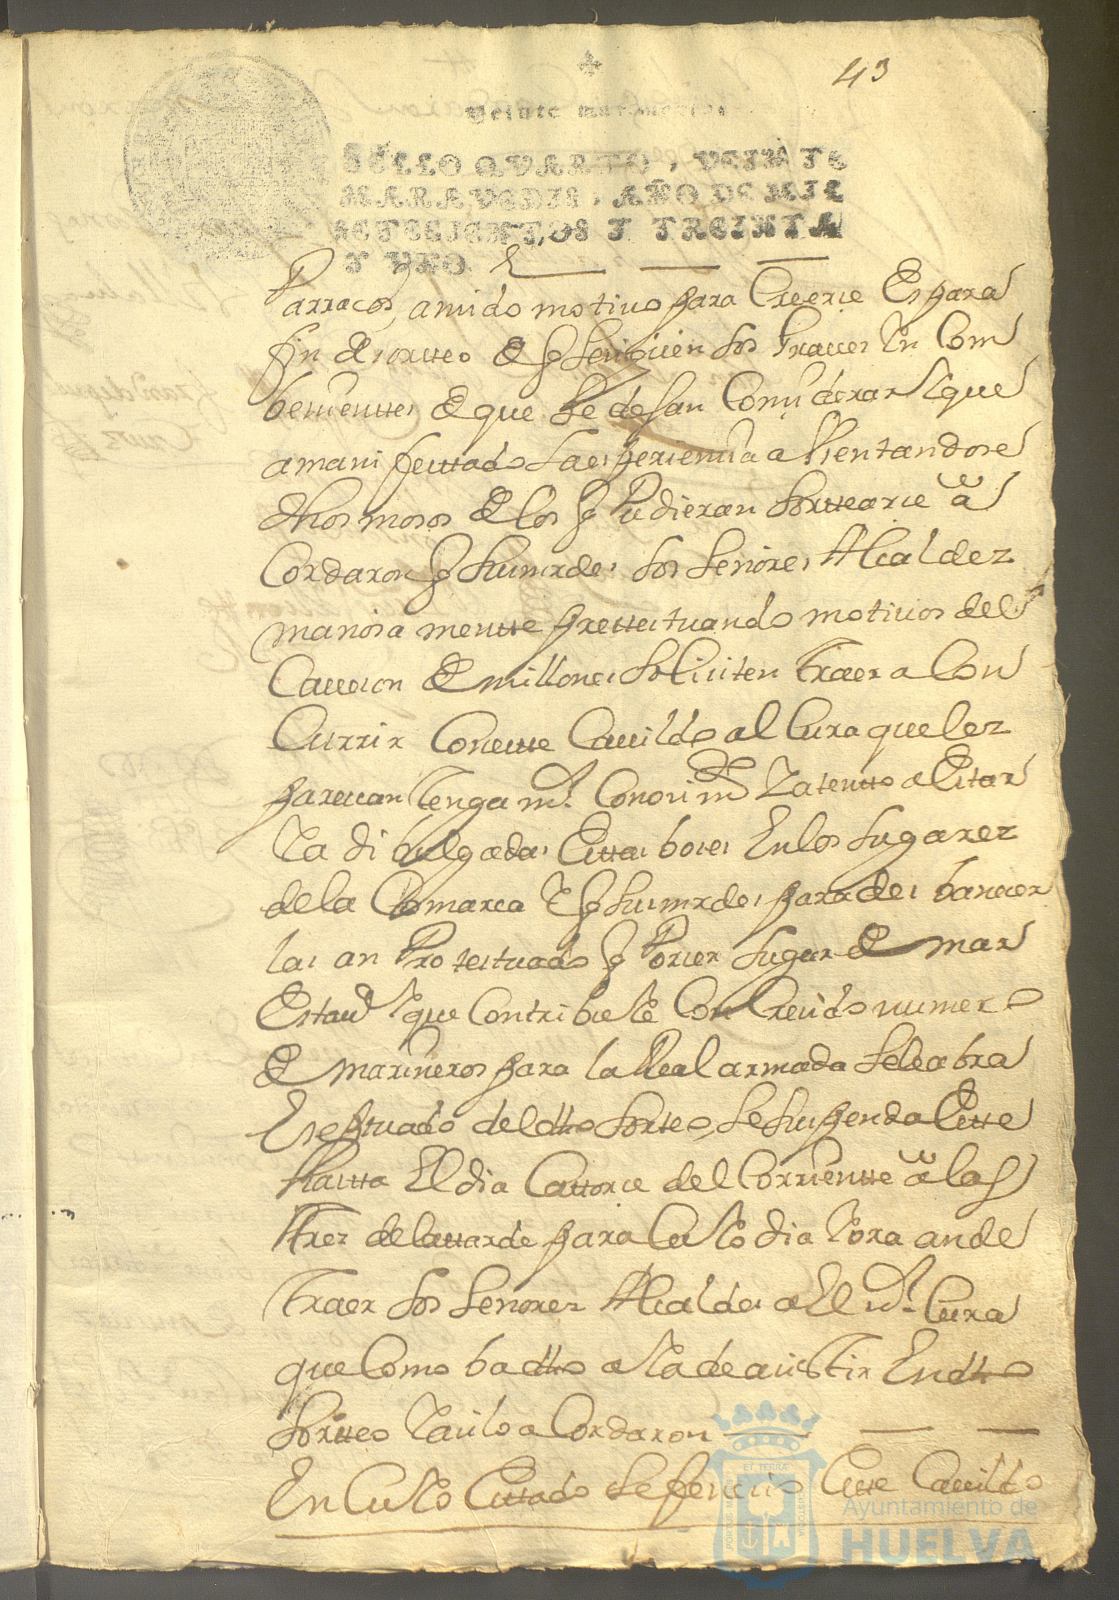 43
Veinte maravedis.
SELLO QVARTO, VEINTE
MARAVEDIS, AÑO DE MIL
SETECIENTOS Y TREINTA
Y VNO
Parracos, a auido motiuo para Creerse Espara
fin de sorteo de q se siguen los Graues In Com
benientes de que se dejan Considerar y que
a manifestado la esperiencia ausentandose
dhos mosos de los q Pudieran Sortearse a
Cordaron q sus mrdes los Señores Alcaldez
mañosa mente pretestuando motiuos de
de millones soliciten Traer a Con
Currir Coneste Cauildo al Cura que lez
parescan Tenga ms. Conosimto Yatento a Estar
Ya dibulgadas Estas boses En los Lugarez
de la Comarca Y q sus mrdes para desbaneser
las an Protestuado q Por ser Lugar de mar
Estaud Y que Contribuie Con Cresido numero
de marineros para la Real armada sele abra
Eseptuado del dho Sorteo, se suspenda Este
Hasta El dia Catorse del Corriente a las
Trez de la tarde para Cuio dia Y ora an de
Traer los Señorez Alcaldes a El Cura
que Como ba dho a Ya de asistir En dho
Sorteo Y asilo a Cordaron
En Cuio Estado se fenecio Este Cauildo
ET TERRAE
CUSTODIA
Ayuntamiento de
HUELVA